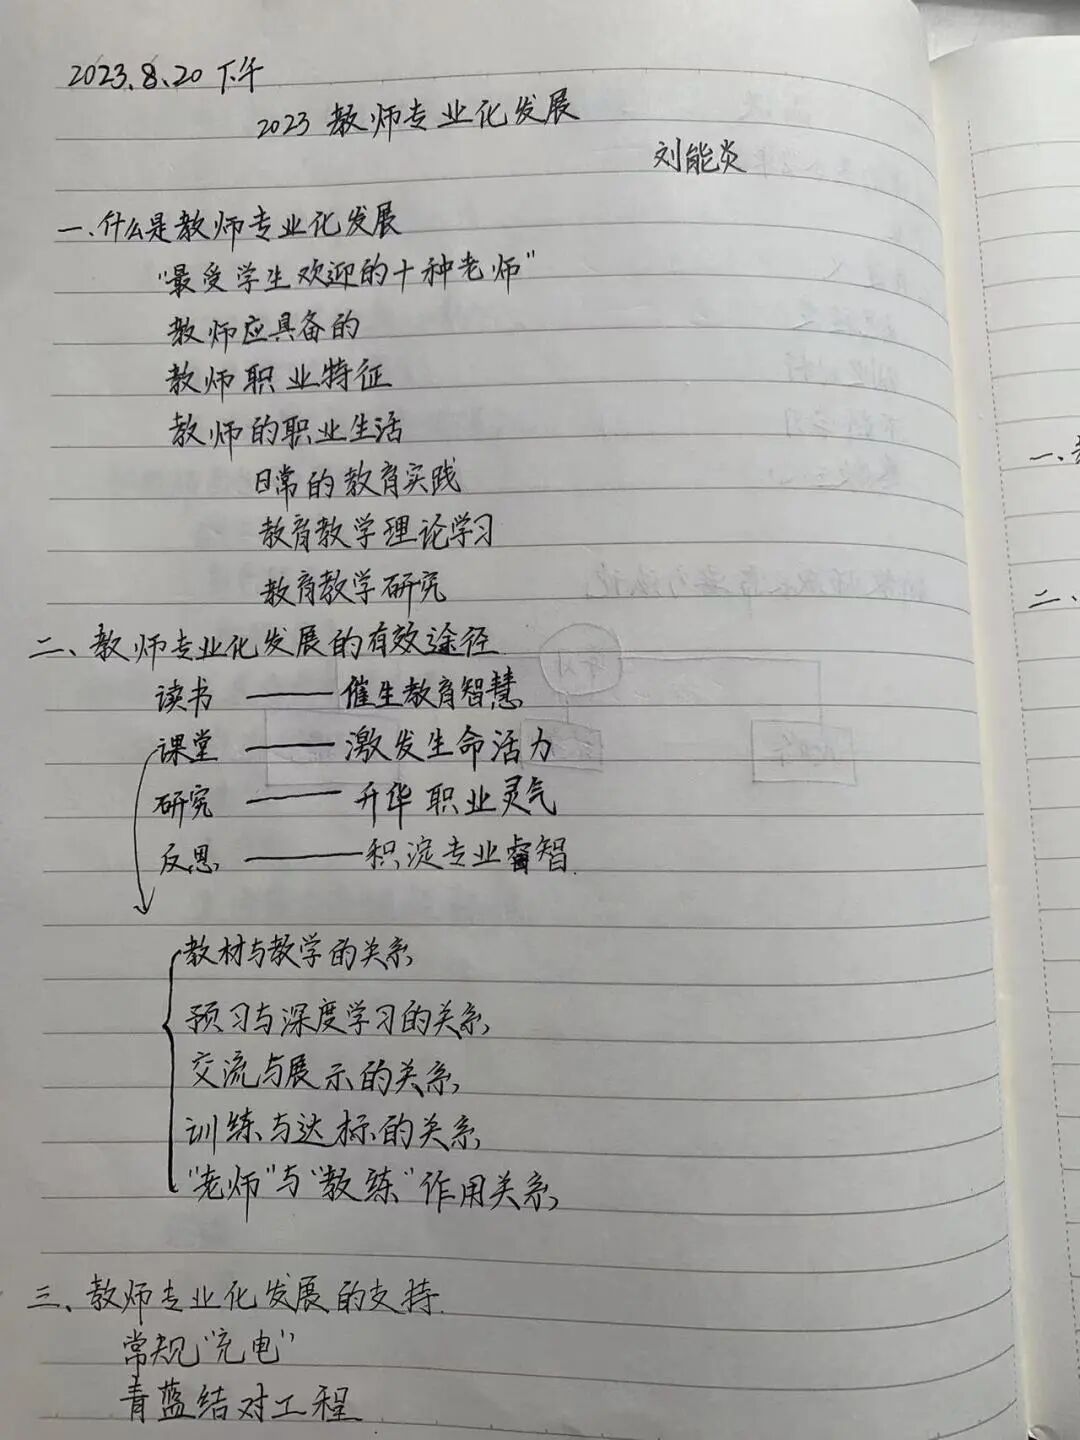 2023.8.20 下午
2023 教师专业化发展
刘能炎
一、什么是教师专业化发展
"最受学生欢迎的十种老师"
教师应具备的
教师职业特征
教师的职业生活
日常的教育实践
教育教学理论学习
教育教学研究
二、教师专业化发展的有效途径
读书 —— 催生教育智慧
课堂 —— 激发生命活力
研究 —— 升华职业灵气
反思 —— 积淀专业睿智
教材与教学的关系
预习与深度学习的关系
交流与展示的关系
训练与达标的关系
"老师"与"教练"作用关系
三、教师专业化发展的支持
常规"充电"
青蓝结对工程
一、
二、